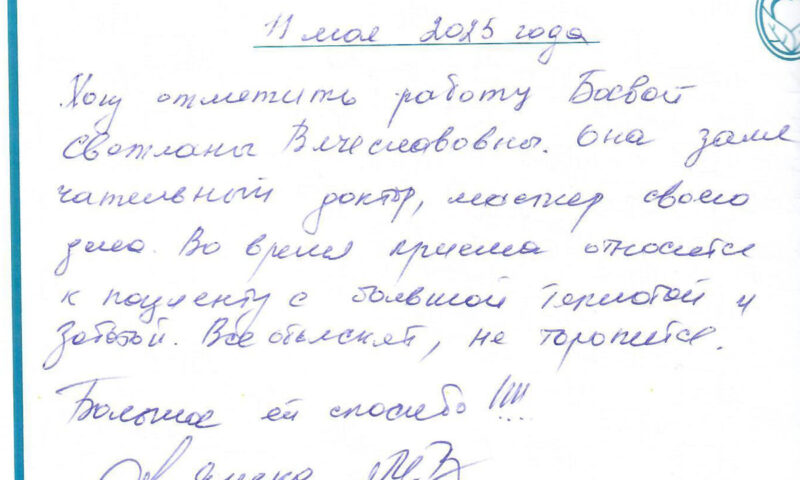 11 мая 2025 года
Хочу отметить работу Боевой
Светланы Вячеславовны. Она заме
чательный доктор, мастер своего
дела. Во время приема относится
к пациенту с большой теплотой и
заботой. Все объяснит, не торопится.
Большое ей спасибо!!!!